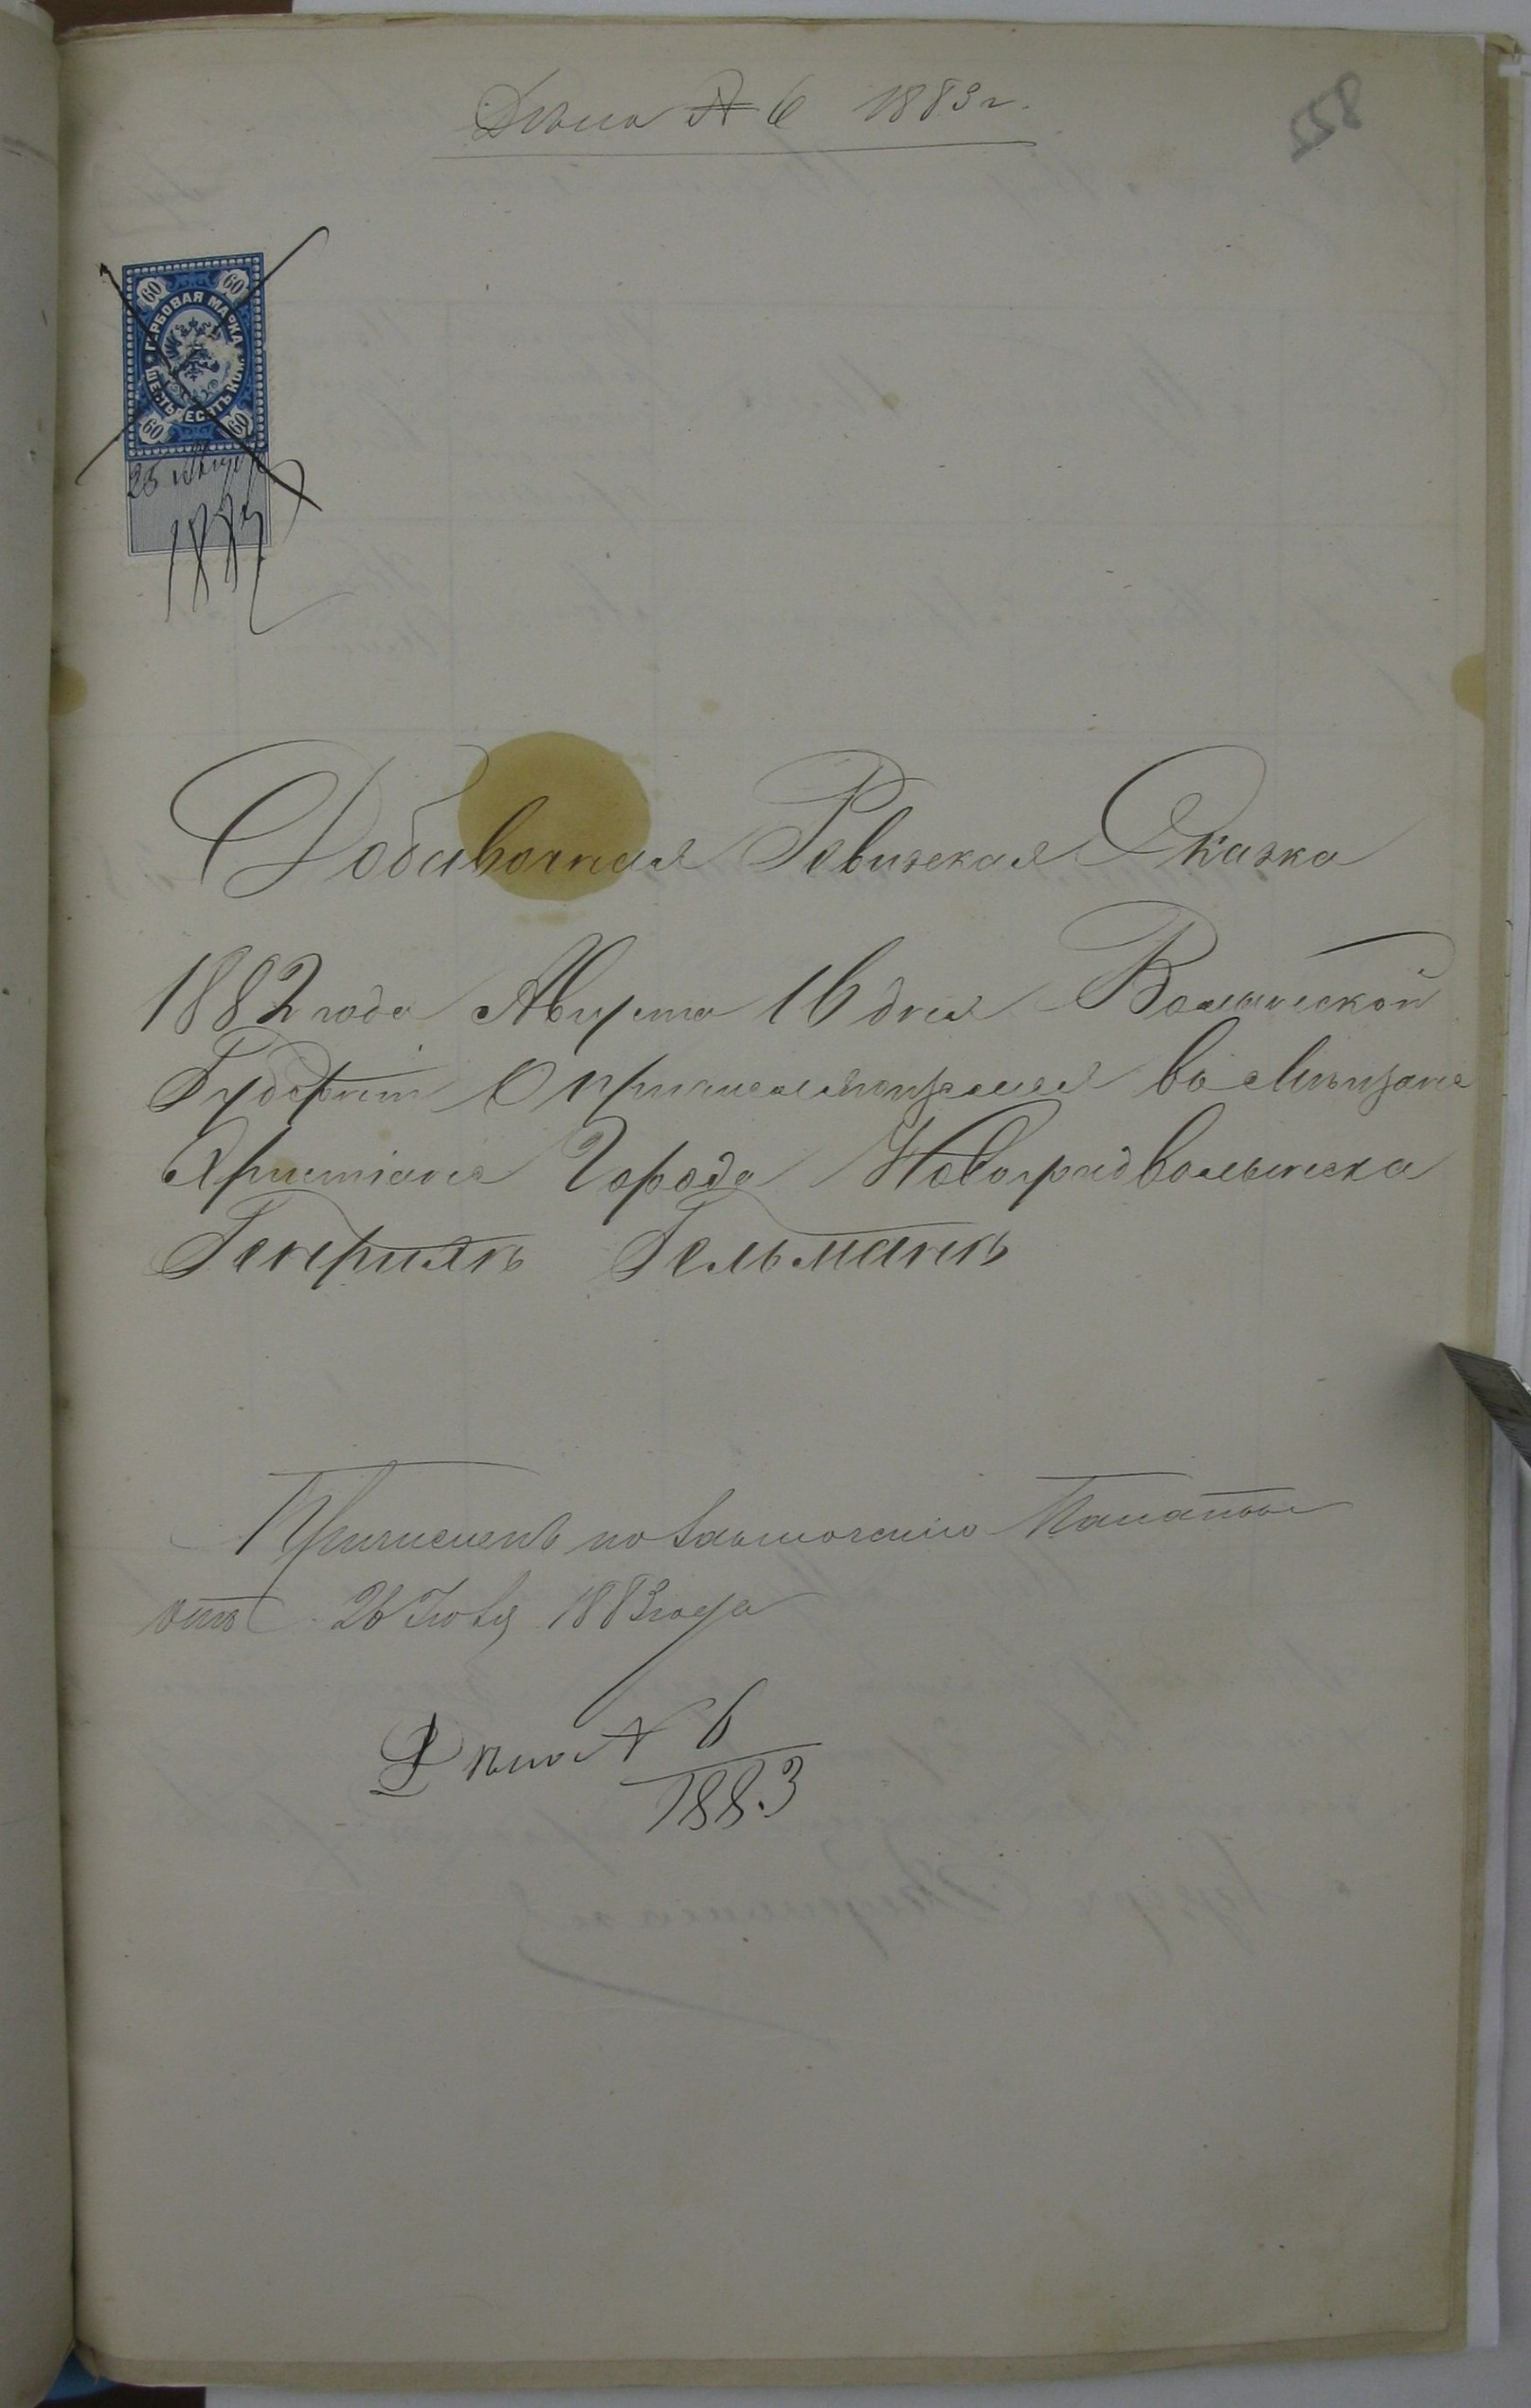 Дѣло № 6 1883 г.
558
60 60
ГЕРБОВАЯ МАРКА
ШЕСТЬДЕСЯТЪ КОП.
60 60
25 Августа
1883
Добавочная Ревизская Сказка
1882 года Августа 16 дня Волынской
Губерніи О причисляющемся въ Мѣщане
Христіане Города Новоградволынска
Генрихъ Гельманъ
Причисленъ по заключенію Палаты
отъ 26 Іюля 1883 года
Дѣло № 6
1883